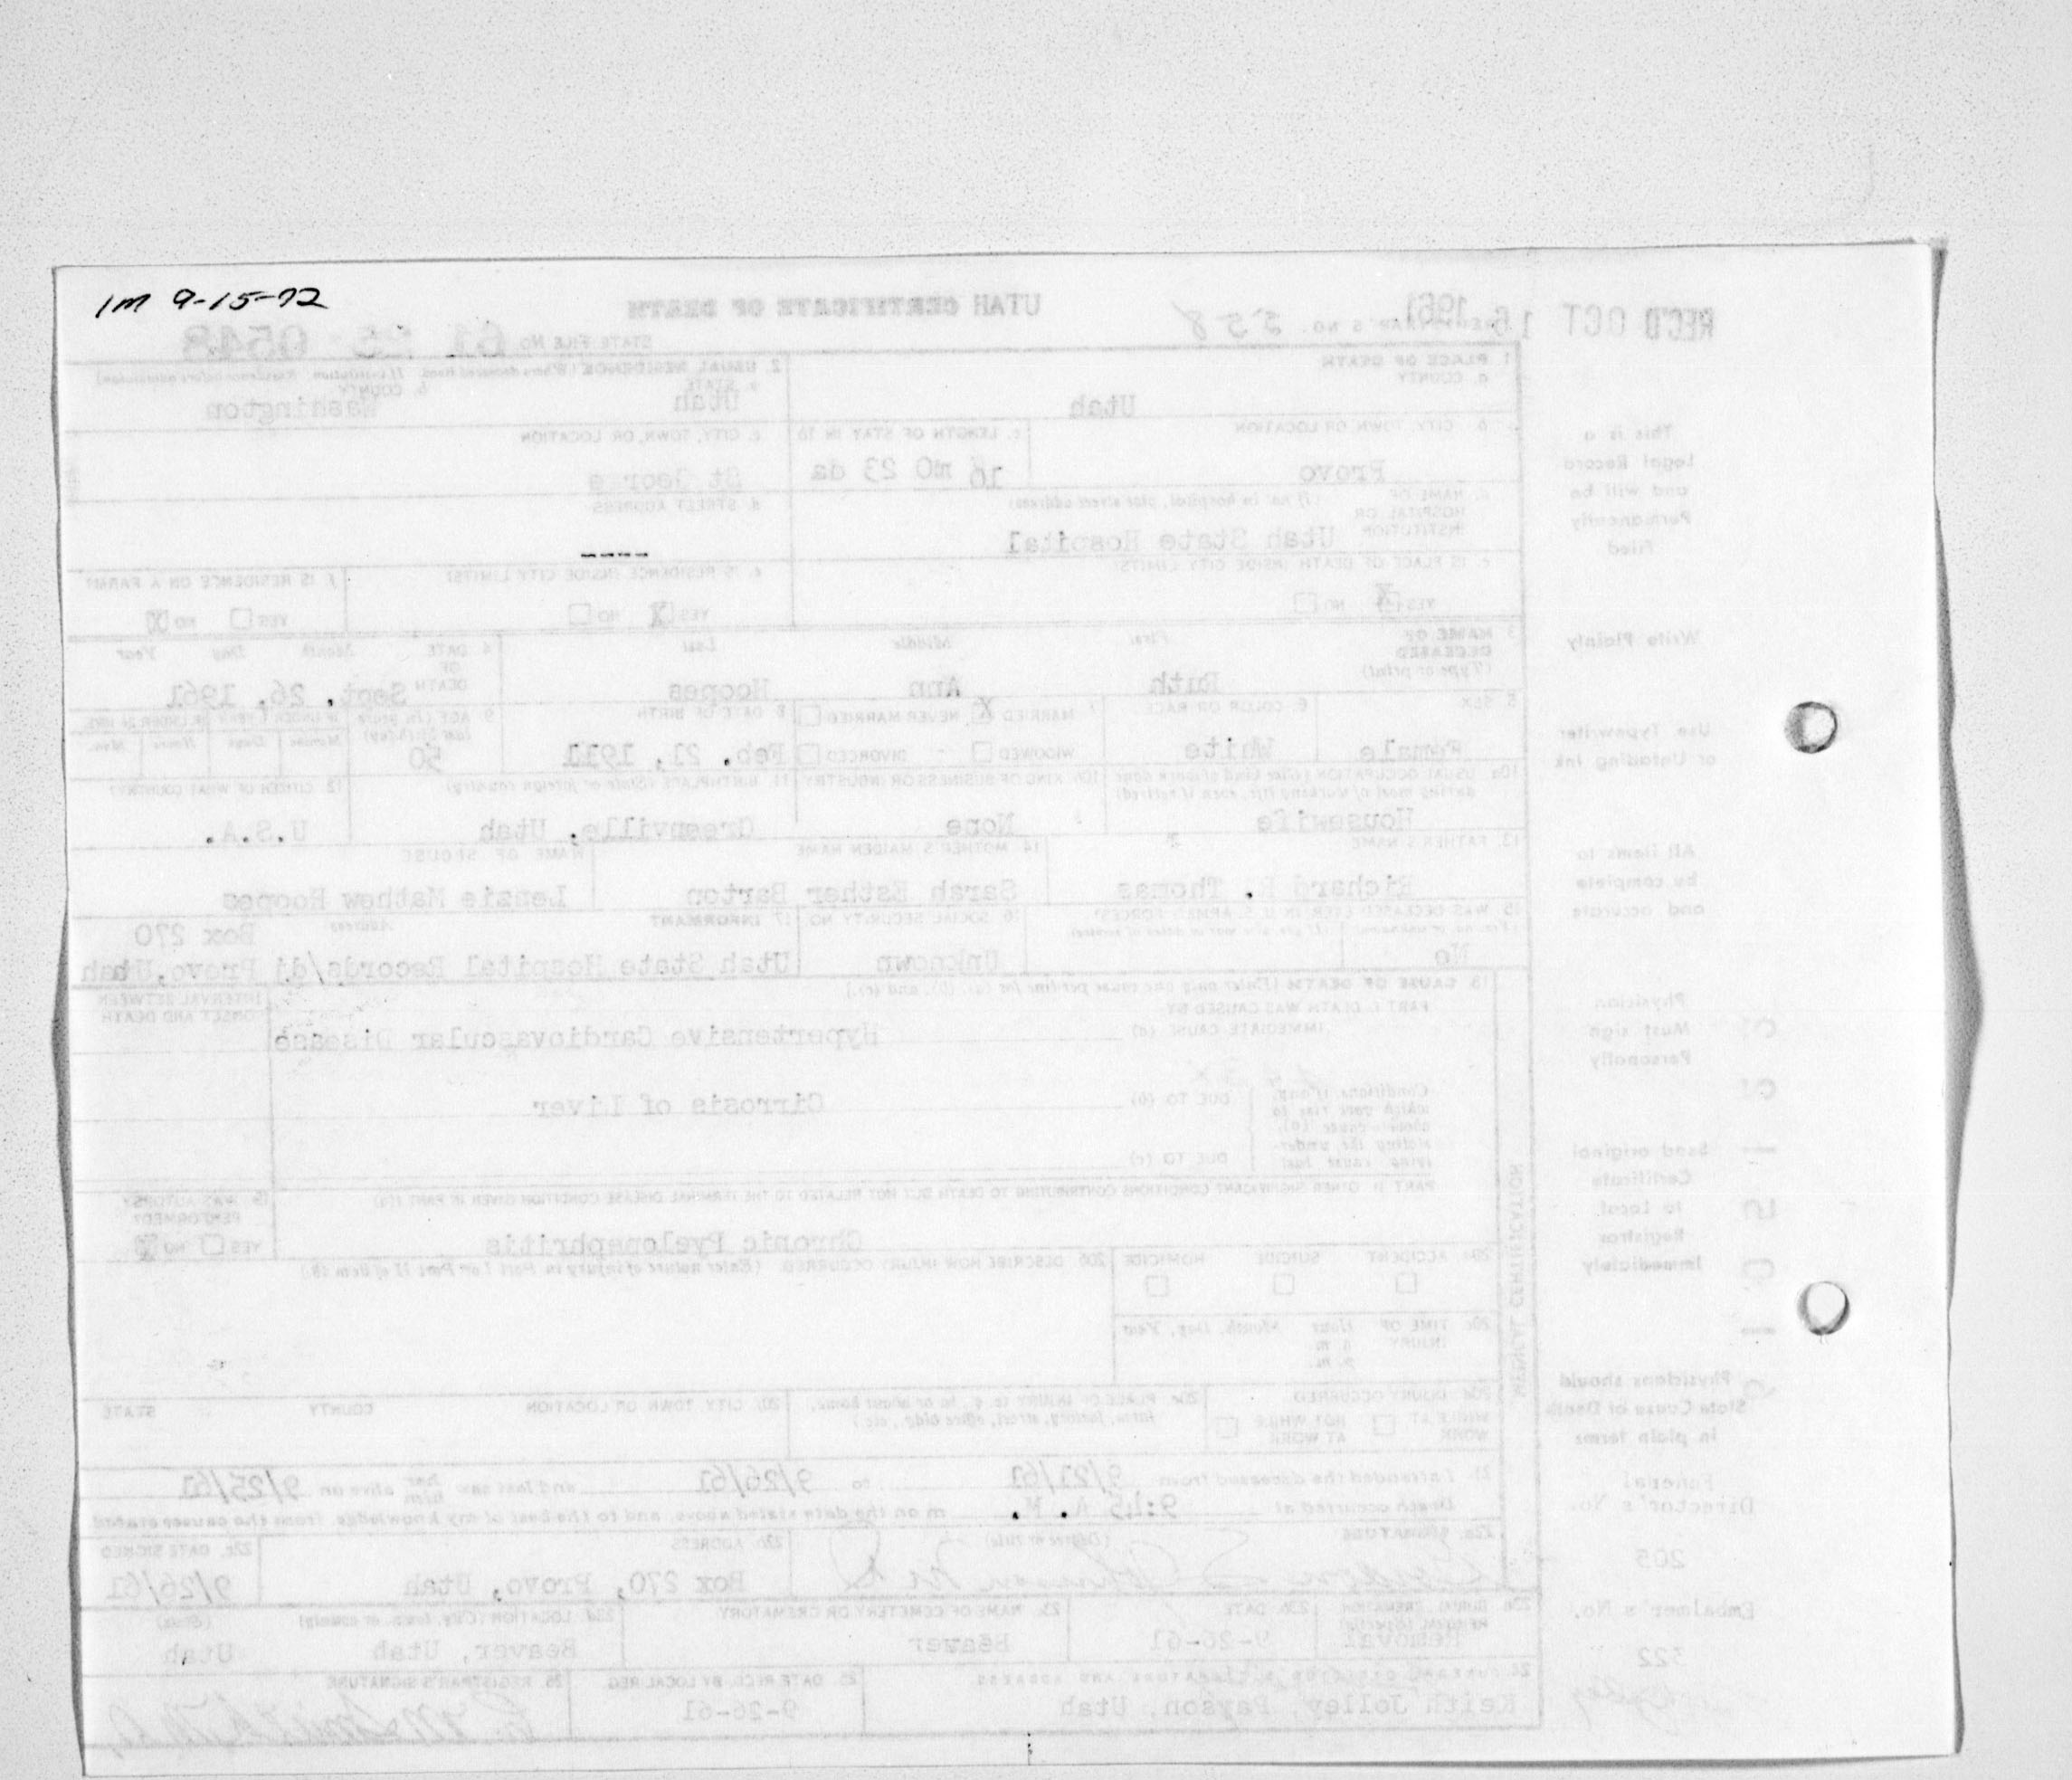 1m 9-15-72
REC'D OCT 16 1961
UTAH CERTIFICATE OF DEATH
REGISTRAR'S NO. 558
STATE FILE NO. 61 25 0548
1. PLACE OF DEATH
a. COUNTY
Utah
2. USUAL RESIDENCE (Where deceased lived. If institution: Residence before admission)
a. STATE
Utah
b. COUNTY
Washington
b. CITY, TOWN, OR LOCATION
Provo
c. LENGTH OF STAY IN 1b
16 mo 23 da
c. CITY, TOWN, OR LOCATION
St George
d. NAME OF HOSPITAL OR INSTITUTION (If not in hospital, give street address)
Utah State Hospital
d. STREET ADDRESS
----
e. IS PLACE OF DEATH INSIDE CITY LIMITS?
YES X NO
e. IS RESIDENCE INSIDE CITY LIMITS?
YES X NO
f. IS RESIDENCE ON A FARM?
YES NO X
3. NAME OF DECEASED (Type or print)
First Middle Last
Ruth Ann Hoopes
4. DATE OF DEATH
Month Day Year
Sept. 26, 1961
5. SEX
Female
6. COLOR OR RACE
White
7. MARRIED X NEVER MARRIED
WIDOWED DIVORCED
8. DATE OF BIRTH
Feb. 21, 1911
9. AGE (In years last birthday)
50
IF UNDER 1 YEAR IF UNDER 24 HRS.
Months Days Hours Min.
10a. USUAL OCCUPATION (Give kind of work done during most of working life, even if retired)
Housewife
10b. KIND OF BUSINESS OR INDUSTRY
None
11. BIRTHPLACE (State or foreign country)
Greenville, Utah
12. CITIZEN OF WHAT COUNTRY?
U.S.A.
13. FATHER'S NAME
Richard Thomas
14. MOTHER'S MAIDEN NAME
Sarah Esther Barton
NAME OF SPOUSE
Lenzie Mathew Hoopes
15. WAS DECEASED EVER IN U.S. ARMED FORCES?
(Yes, no, or unknown) (If yes, give war or dates of service)
No
16. SOCIAL SECURITY NO.
Unknown
17. INFORMANT Address
Box 270
Utah State Hospital Records/dj Provo, Utah
18. CAUSE OF DEATH (Enter only one cause per line for (a), (b), and (c).)
INTERVAL BETWEEN ONSET AND DEATH
PART I. DEATH WAS CAUSED BY
IMMEDIATE CAUSE (a)
Hypertensive Cardiovascular Disease
Conditions, if any, which gave rise to above cause (a), stating the underlying cause last
DUE TO (b)
Cirrosis of Liver
DUE TO (c)
PART II. OTHER SIGNIFICANT CONDITIONS CONTRIBUTING TO DEATH BUT NOT RELATED TO THE TERMINAL DISEASE CONDITION GIVEN IN PART I(a)
Chronic Pyelonephritis
19. WAS AUTOPSY PERFORMED?
YES NO X
20a. ACCIDENT SUICIDE HOMICIDE
20b. DESCRIBE HOW INJURY OCCURRED. (Enter nature of injury in Part I or Part II of item 18.)
20c. TIME OF INJURY
Hour Month, Day, Year
a. m.
p. m.
20d. INJURY OCCURRED
WHILE AT WORK NOT WHILE AT WORK
20e. PLACE OF INJURY (e. g., in or about home, farm, factory, street, office bldg., etc.)
20f. CITY, TOWN, OR LOCATION COUNTY STATE
21. I attended the deceased from 9/21/61 to 9/26/61 and last saw her him alive on 9/25/61
Death occurred at 9:45 A. M. m on the date stated above, and to the best of my knowledge, from the causes stated.
22a. SIGNATURE (Degree or title)
22b. ADDRESS
Box 270, Provo, Utah
22c. DATE SIGNED
9/26/61
23a. BURIAL, CREMATION, REMOVAL (Specify)
Removal
23b. DATE
9-26-61
23c. NAME OF CEMETERY OR CREMATORY
Beaver
23d. LOCATION (City, town, or county) (State)
Beaver, Utah Utah
24. FUNERAL DIRECTOR'S SIGNATURE AND ADDRESS
Keith Jolley, Payson, Utah
25. DATE REC'D. BY LOCAL REG.
9-26-61
26. REGISTRAR'S SIGNATURE
MEDICAL CERTIFICATION
This is a
Legal Record
and will be
Permanently
Filed
Write Plainly
Use Typewriter
or Unfading Ink
All items to
be complete
and accurate
Physician
Must sign
Personally
Send original
Certificate
to Local
Registrar
Immediately
Physicians should
State Cause of Death
in plain terms
Funeral
Director's No.
205
Embalmer's No.
322